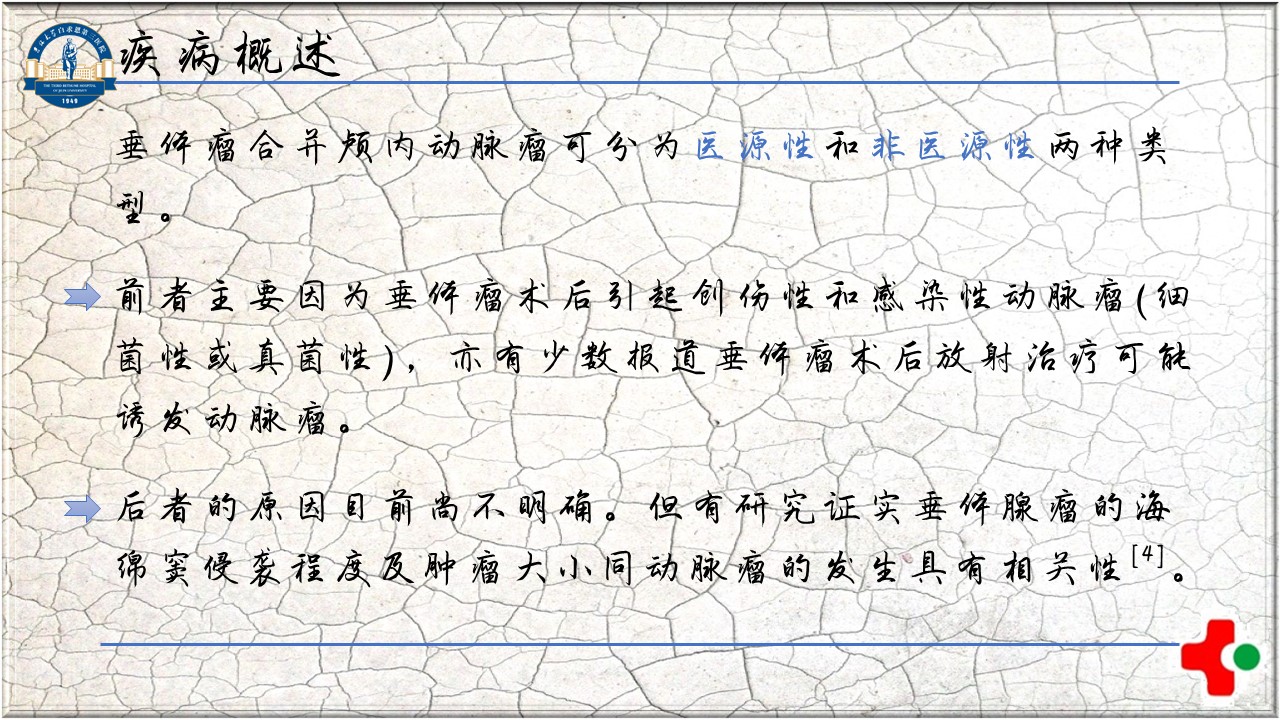 吉林大学白求恩第三医院
THE THIRD BETHUNE HOSPITAL
OF JILIN UNIVERSITY
1949
疾病概述
垂体瘤合并颅内动脉瘤可分为医源性和非医源性两种类
型。
前者主要因为垂体瘤术后引起创伤性和感染性动脉瘤(细
菌性或真菌性)，亦有少数报道垂体瘤术后放射治疗可能
诱发动脉瘤。
后者的原因目前尚不明确。但有研究证实垂体腺瘤的海
绵窦侵袭程度及肿瘤大小同动脉瘤的发生具有相关性[4]。